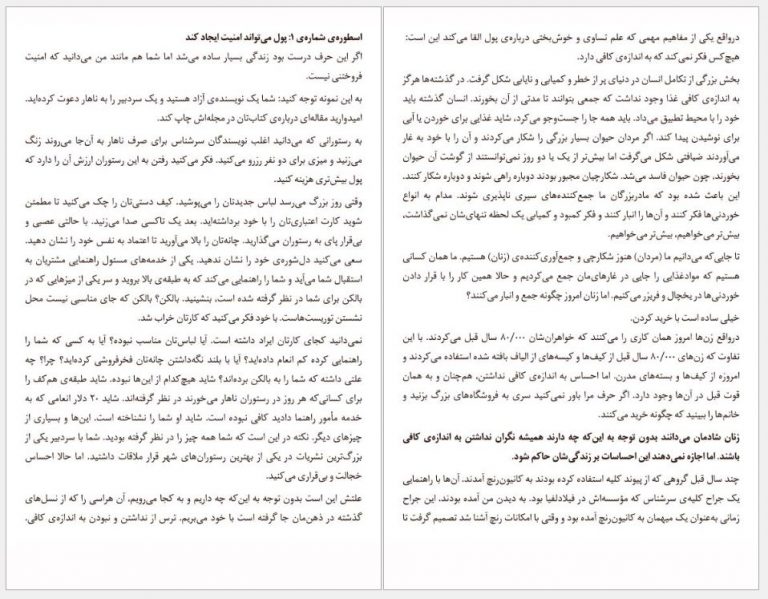 اسطوره‌ی شماره‌ی ۱: پول می‌تواند امنیت ایجاد کند
اگر این حرف درست بود زندگی بسیار ساده می‌شد اما شما هم مانند من می‌دانید که امنیت
فروختنی نیست.
به این نمونه توجه کنید: شما یک نویسنده‌ی آزاد هستید و یک سردبیر را به ناهار دعوت کرده‌اید.
امیدوارید مقاله‌ای درباره‌ی کتاب‌تان در مجله‌اش چاپ کند.
به رستورانی که می‌دانید اغلب نویسندگان سرشناس برای صرف ناهار به آن‌جا می‌روند زنگ
می‌زنید و میزی برای دو نفر رزرو می‌کنید. فکر می‌کنید رفتن به این رستوران ارزش آن را دارد که
پول بیش‌تری هزینه کنید.
وقتی روز بزرگ می‌رسد لباس جدیدتان را می‌پوشید. کیف دستی‌تان را چک می‌کنید تا مطمئن
شوید کارت اعتباری‌تان را با خود برداشته‌اید. بعد یک تاکسی صدا می‌زنید. با حالتی عصبی و
بی‌قرار پای به رستوران می‌گذارید. چانه‌تان را بالا می‌آورید تا اعتماد به نفس خود را نشان دهید.
سعی می‌کنید دل‌شوره‌ی خود را نشان ندهید. یکی از خدمه‌های مسئول راهنمایی مشتریان به
استقبال شما می‌آید و شما را راهنمایی می‌کند که به طبقه‌ی بالا بروید و سر یکی از میزهایی که در
بالکن برای شما در نظر گرفته شده است، بنشینید. بالکن؟ بالکن که جای مناسبی نیست محل
نشستن توریست‌هاست. با خود فکر می‌کنید که کارتان خراب شد.
نمی‌دانید کجای کارتان ایراد داشته است. آیا لباس‌تان مناسب نبوده؟ آیا به کسی که شما را
راهنمایی کرده کم انعام داده‌اید؟ آیا با بلند نگه‌داشتن چانه‌تان فخرفروشی کرده‌اید؟ چرا؟ چه
علتی داشته که شما را به بالکن برده‌اند؟ شاید هیچ‌کدام از این‌ها نبوده. شاید طبقه‌ی هم‌کف را
برای کسانی‌که هر روز در رستوران ناهار می‌خورند در نظر گرفته‌اند. شاید ۲۰ دلار انعامی که به
خدمه مأمور راهنما دادید کافی نبوده است. شاید او شما را نشناخته است. این‌ها و بسیاری از
چیزهای دیگر. نکته در این است که شما همه چیز را در نظر گرفته بودید. شما با سردبیر یکی از
بزرگ‌ترین نشریات در یکی از بهترین رستوران‌های شهر قرار ملاقات داشتید. اما حالا احساس
خجالت و بی‌قراری می‌کنید.
علتش این است بدون توجه به این‌که چه داریم و به کجا می‌رویم، آن هراسی را که از نسل‌های
گذشته در ذهن‌مان جا گرفته است با خود می‌بریم. ترس از نداشتن و نبودن به اندازه‌ی کافی.
درواقع یکی از مفاهیم مهمی که علم تساوی و خوش‌بختی درباره‌ی پول القا می‌کند این است:
هیچ‌کس فکر نمی‌کند که به اندازه‌ی کافی دارد.
بخش بزرگی از تکامل انسان در دنیای پر از خطر و کمیابی و نایابی شکل گرفت. در گذشته‌ها هرگز
به اندازه‌ی کافی غذا وجود نداشت که جمعی بتوانند تا مدتی از آن بخورند. انسان گذشته باید
خود را با محیط تطبیق می‌داد. باید همه جا را جست‌وجو می‌کرد، شاید غذایی برای خوردن یا آبی
برای نوشیدن پیدا کند. اگر مردان حیوان بسیار بزرگی را شکار می‌کردند و آن را با خود به غار
می‌آوردند ضیافتی شکل می‌گرفت اما بیش‌تر از یک یا دو روز نمی‌توانستند از گوشت آن حیوان
بخورند، چون حیوان فاسد می‌شد. شکارچیان مجبور بودند دوباره راهی شوند و دوباره شکار کنند.
این باعث شده بود که مادربزرگان ما جمع‌کننده‌های سیری ناپذیری شوند. مدام به انواع
خوردنی‌ها فکر کنند و آن‌ها را انبار کنند و فکر کمبود و کمیابی یک لحظه تنهای‌شان نمی‌گذاشت،
بیش‌تر می‌خواهیم، بیش‌تر می‌خواهیم.
تا جایی که می‌دانیم ما (مردان) هنوز شکارچی و جمع‌آوری‌کننده‌ی (زنان) هستیم. ما همان کسانی
هستیم که موادغذایی را جایی در غارهای‌مان جمع می‌کردیم و حالا همین کار را با قرار دادن
خوردنی‌ها در یخچال و فریزر می‌کنیم. اما زنان امروز چگونه جمع و انبار می‌کنند؟
خیلی ساده است با خرید کردن.
درواقع زن‌ها امروز همان کاری را می‌کنند که خواهران‌شان ۸۰/۰۰۰ سال قبل می‌کردند. با این
تفاوت که زن‌های ۸۰/۰۰۰ سال قبل از کیف‌ها و کیسه‌های از الیاف بافته شده استفاده می‌کردند و
امروزه از کیف‌ها و بسته‌های مدرن. اما احساس به اندازه‌ی کافی نداشتن، هم‌چنان و به همان
قوت قبل در آن‌ها وجود دارد. اگر حرف مرا باور نمی‌کنید سری به فروشگاه‌های بزرگ بزنید و
خانم‌ها را ببینید که چگونه خرید می‌کنند.
زنان شادمان می‌دانند بدون توجه به این‌که چه دارند همیشه نگران نداشتن به اندازه‌ی کافی
باشند. اما اجازه نمی‌دهند این احساسات بر زندگی‌شان حاکم شود.
چند سال قبل گروهی که از پیوند کلیه استفاده کرده بودند به کانیون‌رنچ آمدند. آن‌ها با راهنمایی
یک جراح کلیه‌ی سرشناس که مؤسسه‌اش در فیلادلفیا بود. به دیدن من آمده بودند. این جراح
زمانی به‌عنوان یک میهمان به کانیون‌رنچ آمده بود و وقتی با امکانات رنچ آشنا شد تصمیم گرفت تا